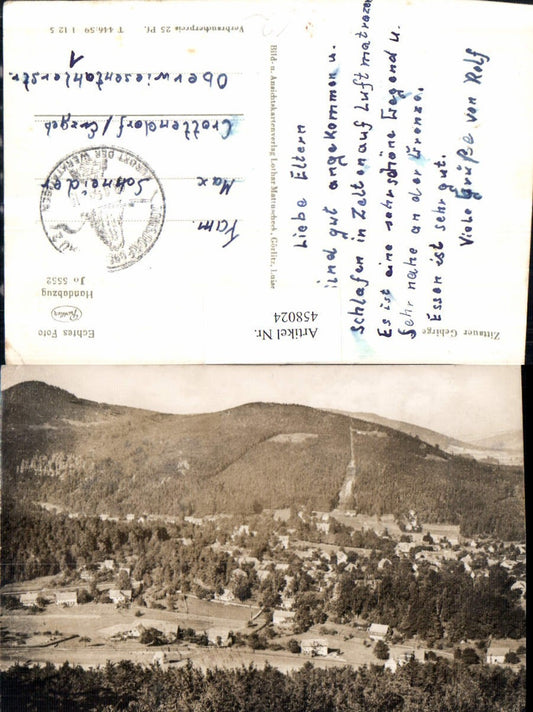 Liebe Eltern
sind gut angekommen u.
schlafen in Zelten auf Luftmatrazen
Es ist eine sehr schöne Gegend u.
sehr nahe an der Grenze.
Essen ist sehr gut.
Viele Grüße von Rolf
Zittauer Gebirge
Artikel Nr.
458024
Bild- u. Ansichtskartenverlag Lothar Mattuscheck, Görlitz, Luise
Fam.
Max Schneider
Crottendorf/Erzgeb
Oberwiesenthalerstr.
1
Echtes Foto
Handabzug
Jo 5552
Verbraucherpreis 25 Pf.
T 446/59 1 12 5